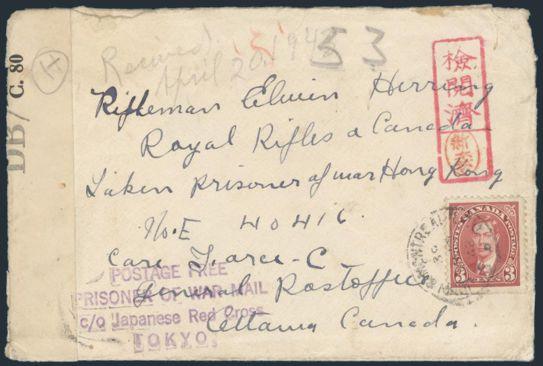 DB/ C. 80
H
Received
April 20, 194
53
Rifleman Elwin Herring
Royal Rifles of Canada
Taken prisoner of war Hong Kong
No. E 40416
Care
General Postoffice
Ottawa Canada.
POSTAGE FREE
PRISONER OF WAR MAIL
c/o Japanese Red Cross
TOKYO
検閲済
MONTREAL
CANADA
POSTES POSTAGE
3 3